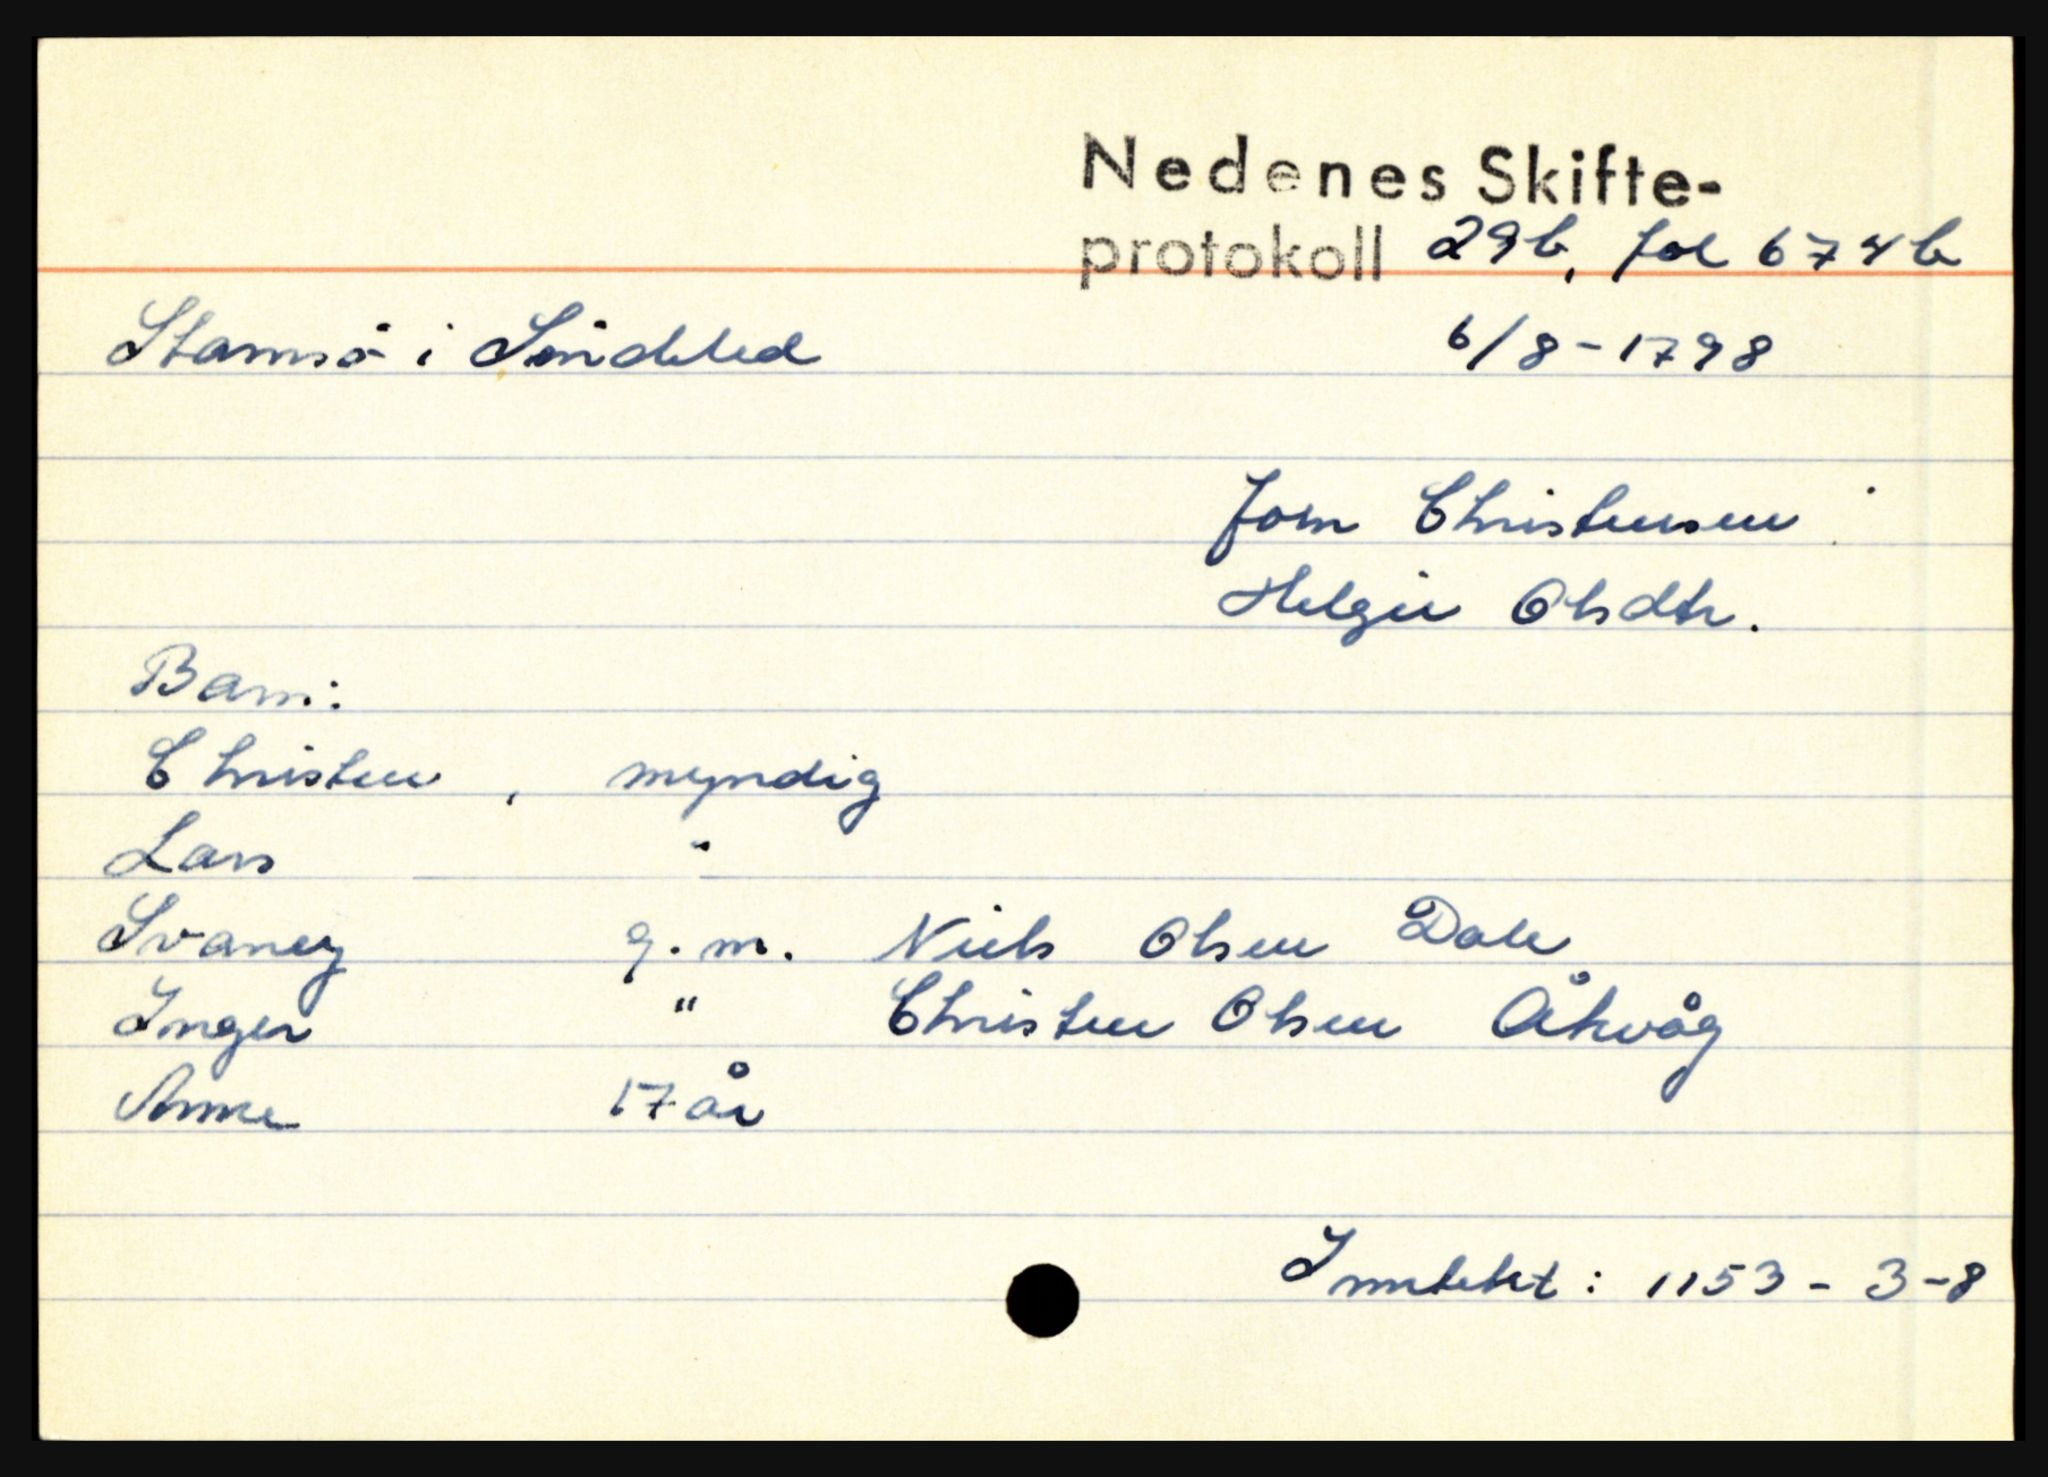 Nedenes Skifte-
protokoll 29b, fol 674b
Stamsö i Söndeled 6/8-1798
Jorn Christensen
Helgie Olsdtr.
Barn:
Christen, myndig
Lars "
Svaney g.m. Niels Olsen Dale
Inger " Christen Olsen Åkvåg
Anne 17 år
Inntekt: 1153-3-8